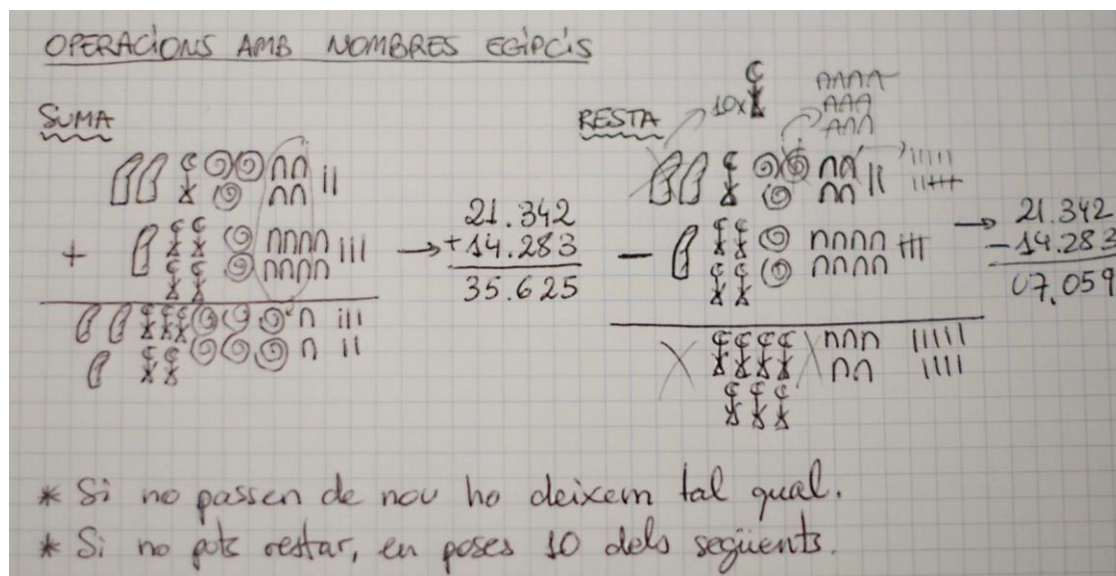 OPERACIONS AMB NOMBRES EGIPCIS
SUMA
21.342
+14.283
35.625
RESTA
10x
21.342
-14.283
07.059
* Si no passen de nou ho deixem tal qual.
* Si no pots restar, en poses 10 dels següents.